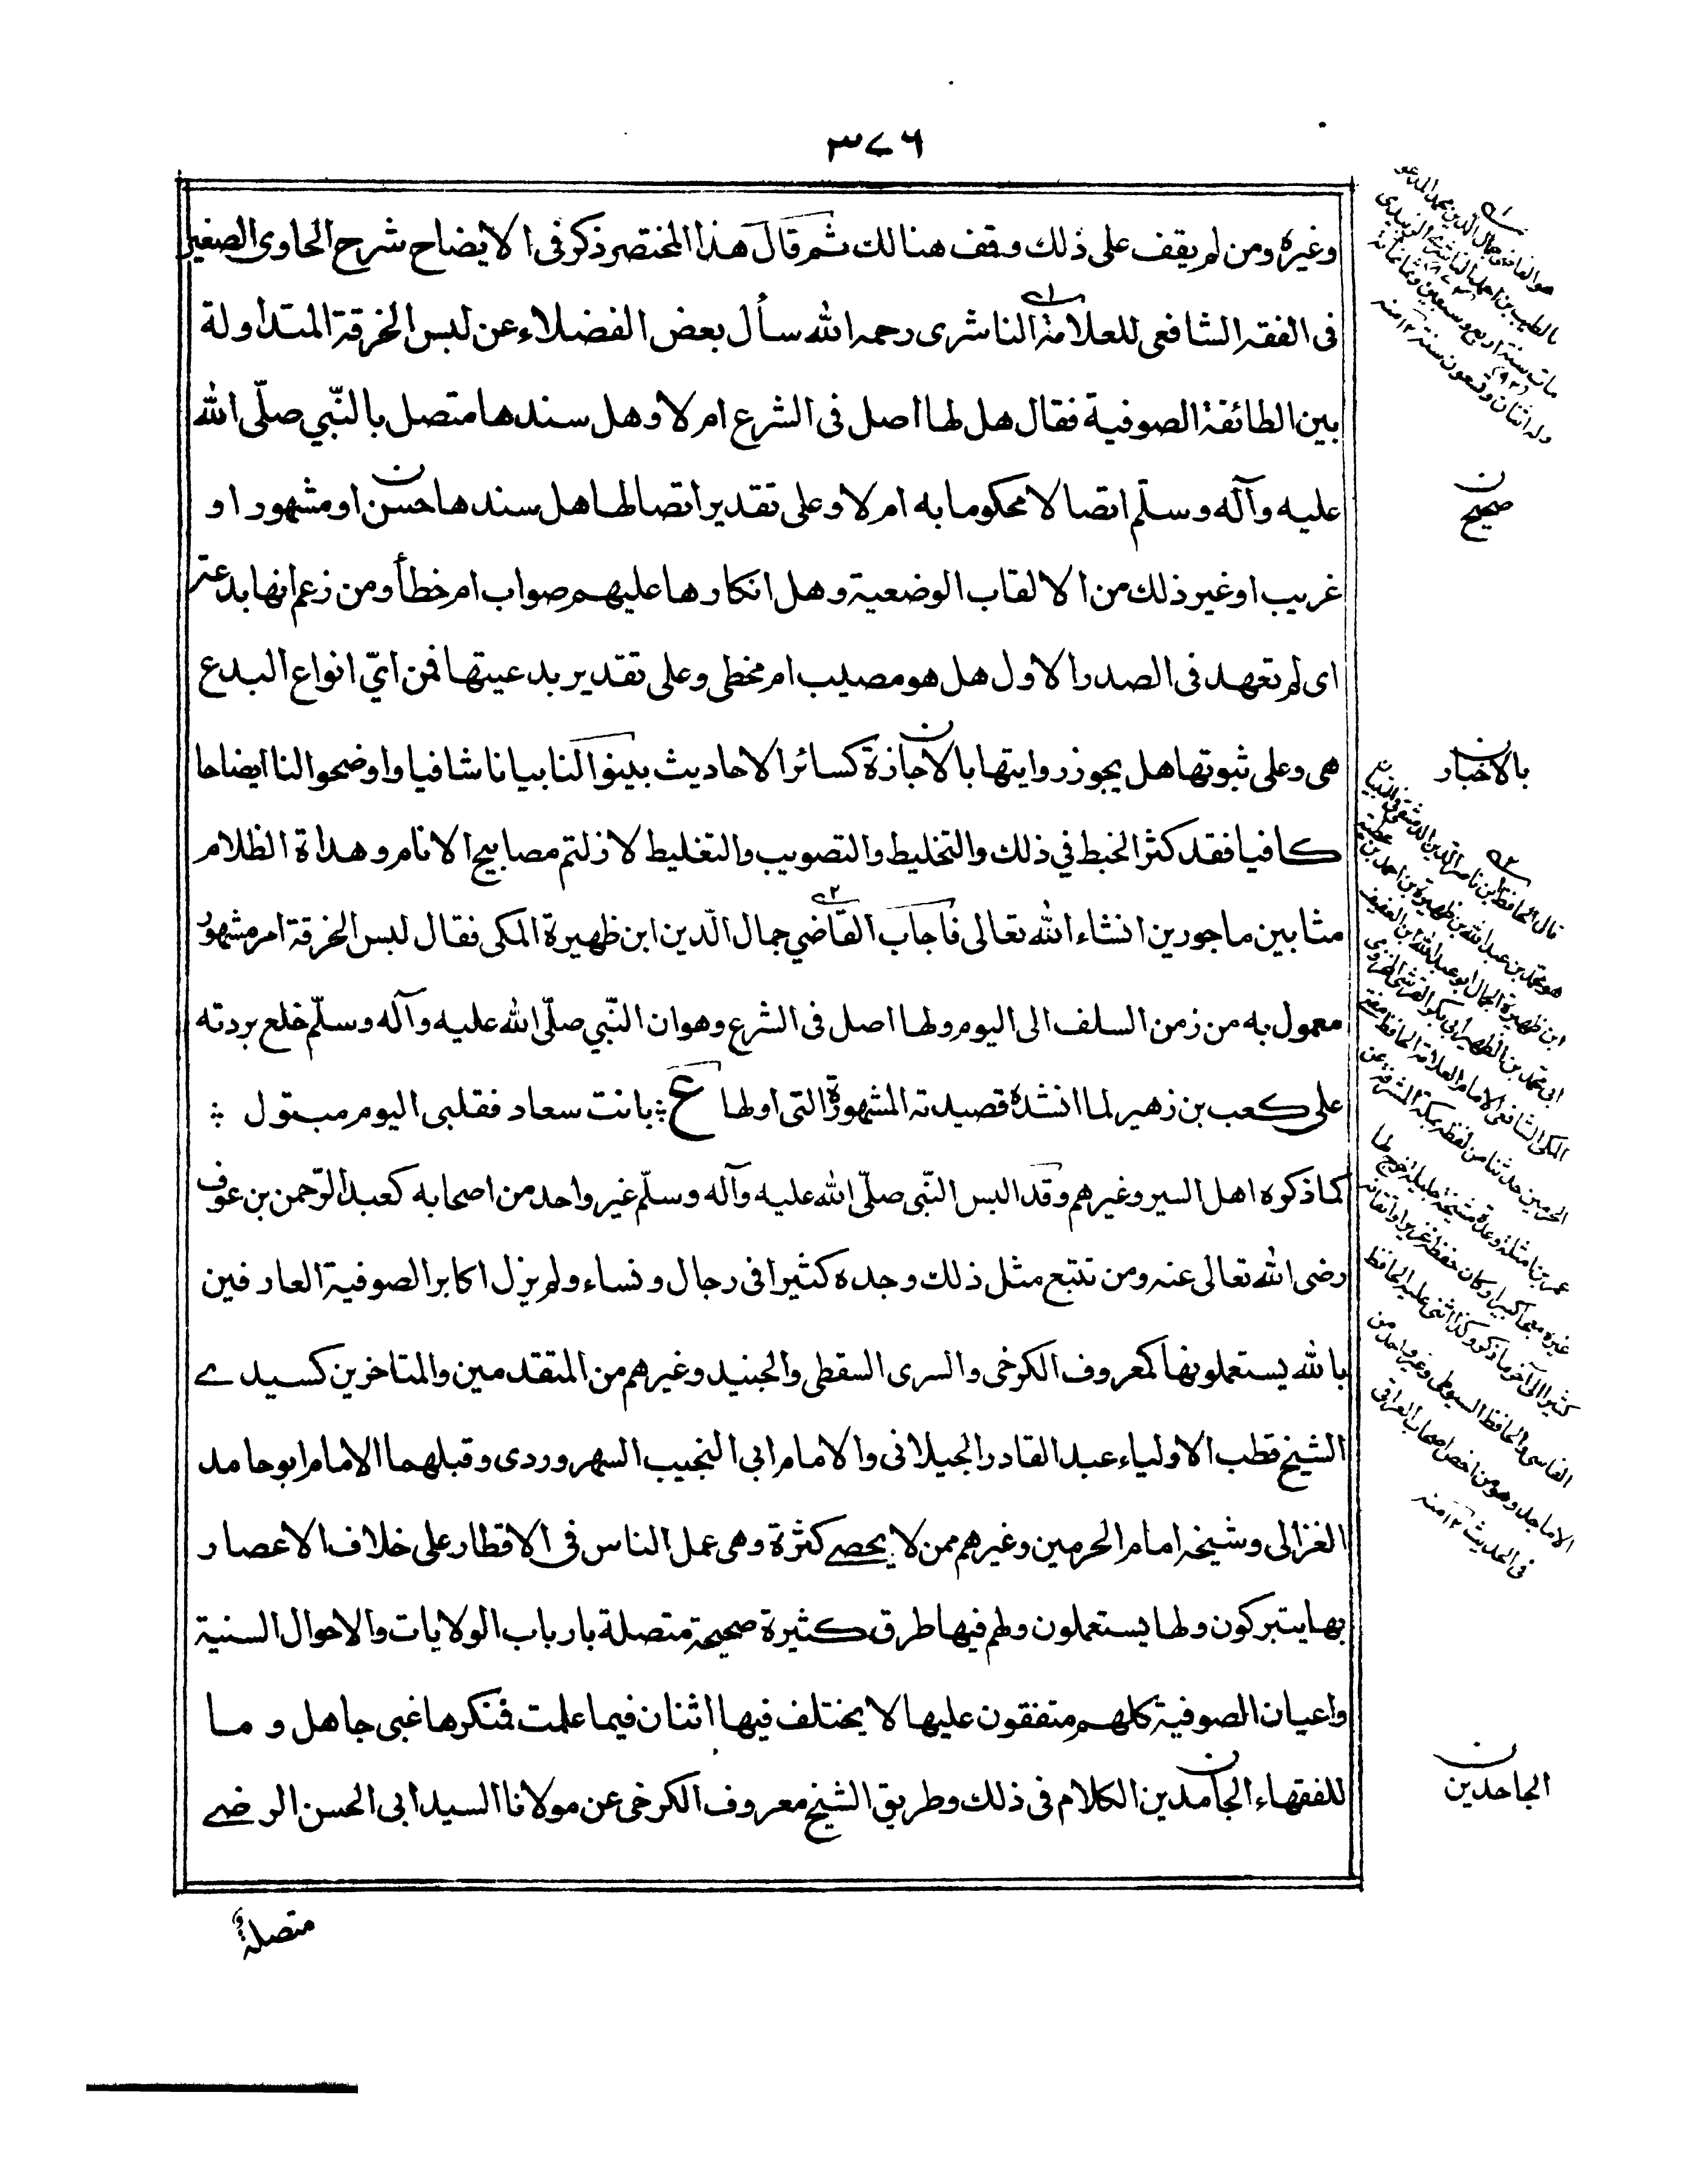 ٣٧٦
وغيره ومن لم يقف على ذلك وقف هنالك ثم قال هذا المختصر ذكر فى الايضاح شرح الحاوى الصغير
فى الفقه الشافعى للعلامة الناشرى رحمه الله سأل بعض الفضلاء عن لبس الخرقة المتداولة
بين الطائفة الصوفية فقال هل لها اصل فى الشرع ام لا وهل سندها متصل بالنّبي صلّى الله
عليه وآله وسلّم اتصالا محكوما به ام لا وعلى تقدير اتصالها هل سندها حسن او مشهور او
غريب او غير ذلك من الالقاب الوضعية وهل انكارها عليهم صواب ام خطأ ومن زعم انها بدعة
اى لم تعهد فى الصدر الاول هل هو مصيب ام مخطى وعلى تقدير بدعيتها فمن ايّ انواع البدع
هى وعلى ثبوتها هل يجوز روايتها بالاجازة كسائر الاحاديث بينوا لنا بيانا شافيا واوضحوا لنا ايضاحا
كافيا فقد كثر الخبط في ذلك والتخليط والتصويب والتغليط لازلتم مصابيح الانام وهداة الظلام
مثابين ماجورين انشاء الله تعالى فاجاب القاضي جمال الدّين ابن ظهيرة المكى فقال لبس الخرقة امر مشهور
معمول به من زمن السلف الى اليوم ولها اصل فى الشرع وهو ان النّبي صلّى الله عليه وآله وسلّم خلع بردته
على كعب بن زهير لما انشده قصيدته المشهورة التى اولها ع بانت سعاد فقلبى اليوم مبتول
كما ذكره اهل السير وغيرهم وقد البس النّبى صلّى الله عليه وآله وسلّم غير واحد من اصحابه كعبد الرّحمن بن عوف
رضى الله تعالى عنه ومن تتبع مثل ذلك وجده كثيرا فى رجال ونساء ولم يزل اكابر الصوفية العارفين
بالله يستعملونها كمعروف الكرخى والسرى السقطى والجنيد وغيرهم من المتقدمين والمتاخرين كسيدے
الشيخ قطب الاولياء عبد القادر الجيلانى والامام ابى النجيب السهروردى وقبلهما الامام ابو حامد
الغزالى وشيخه امام الحرمين وغيرهم ممن لا يحصے كثرة وهى عمل الناس فى الاقطار على خلاف الاعصار
بها يتبركون ولها يستعملون ولهم فيها طرق كثيرة صحيحة متصلة بارباب الولايات والاحوال السنية
واعيان الصوفية كلهم متفقون عليها لا يختلف فيها اثنان فيما علمت فمنكرها غبى جاهل وما
للفقهاء الجامدين الكلام فى ذلك وطريق الشيخ معروف الكرخى عن مولانا السيد ابى الحسن الرضے
متصلة
هو القاضى جمال الدّين محمد المدعو
بالطيب بن احمد الناشرى الزبيدى
مات سنة اربع وسبعين وثمانمائة
وله اثنان وتسعون سنة ١٢ منه
ن
صحيح
ن
بالاخبار
قال الحافظ ابن ناصر الدين الدمشقى فى التبيان
هو محمد بن عبد الله بن ظهيرة بن احمد بن عطية
ابن ظهيرة الجمال ابو عبد الله ابن العفيف
المكى الشافعى الامام العلامة الحافظ مفتى
الحرمين حدثنا من لفظه بمكة المشرفة عن
الفاسى والحافظ السيوطى وغير واحد من
الاماجد وهو من اخص اصحاب العراقى
فى الحديث ١٢ منه
ن
الجاحدين